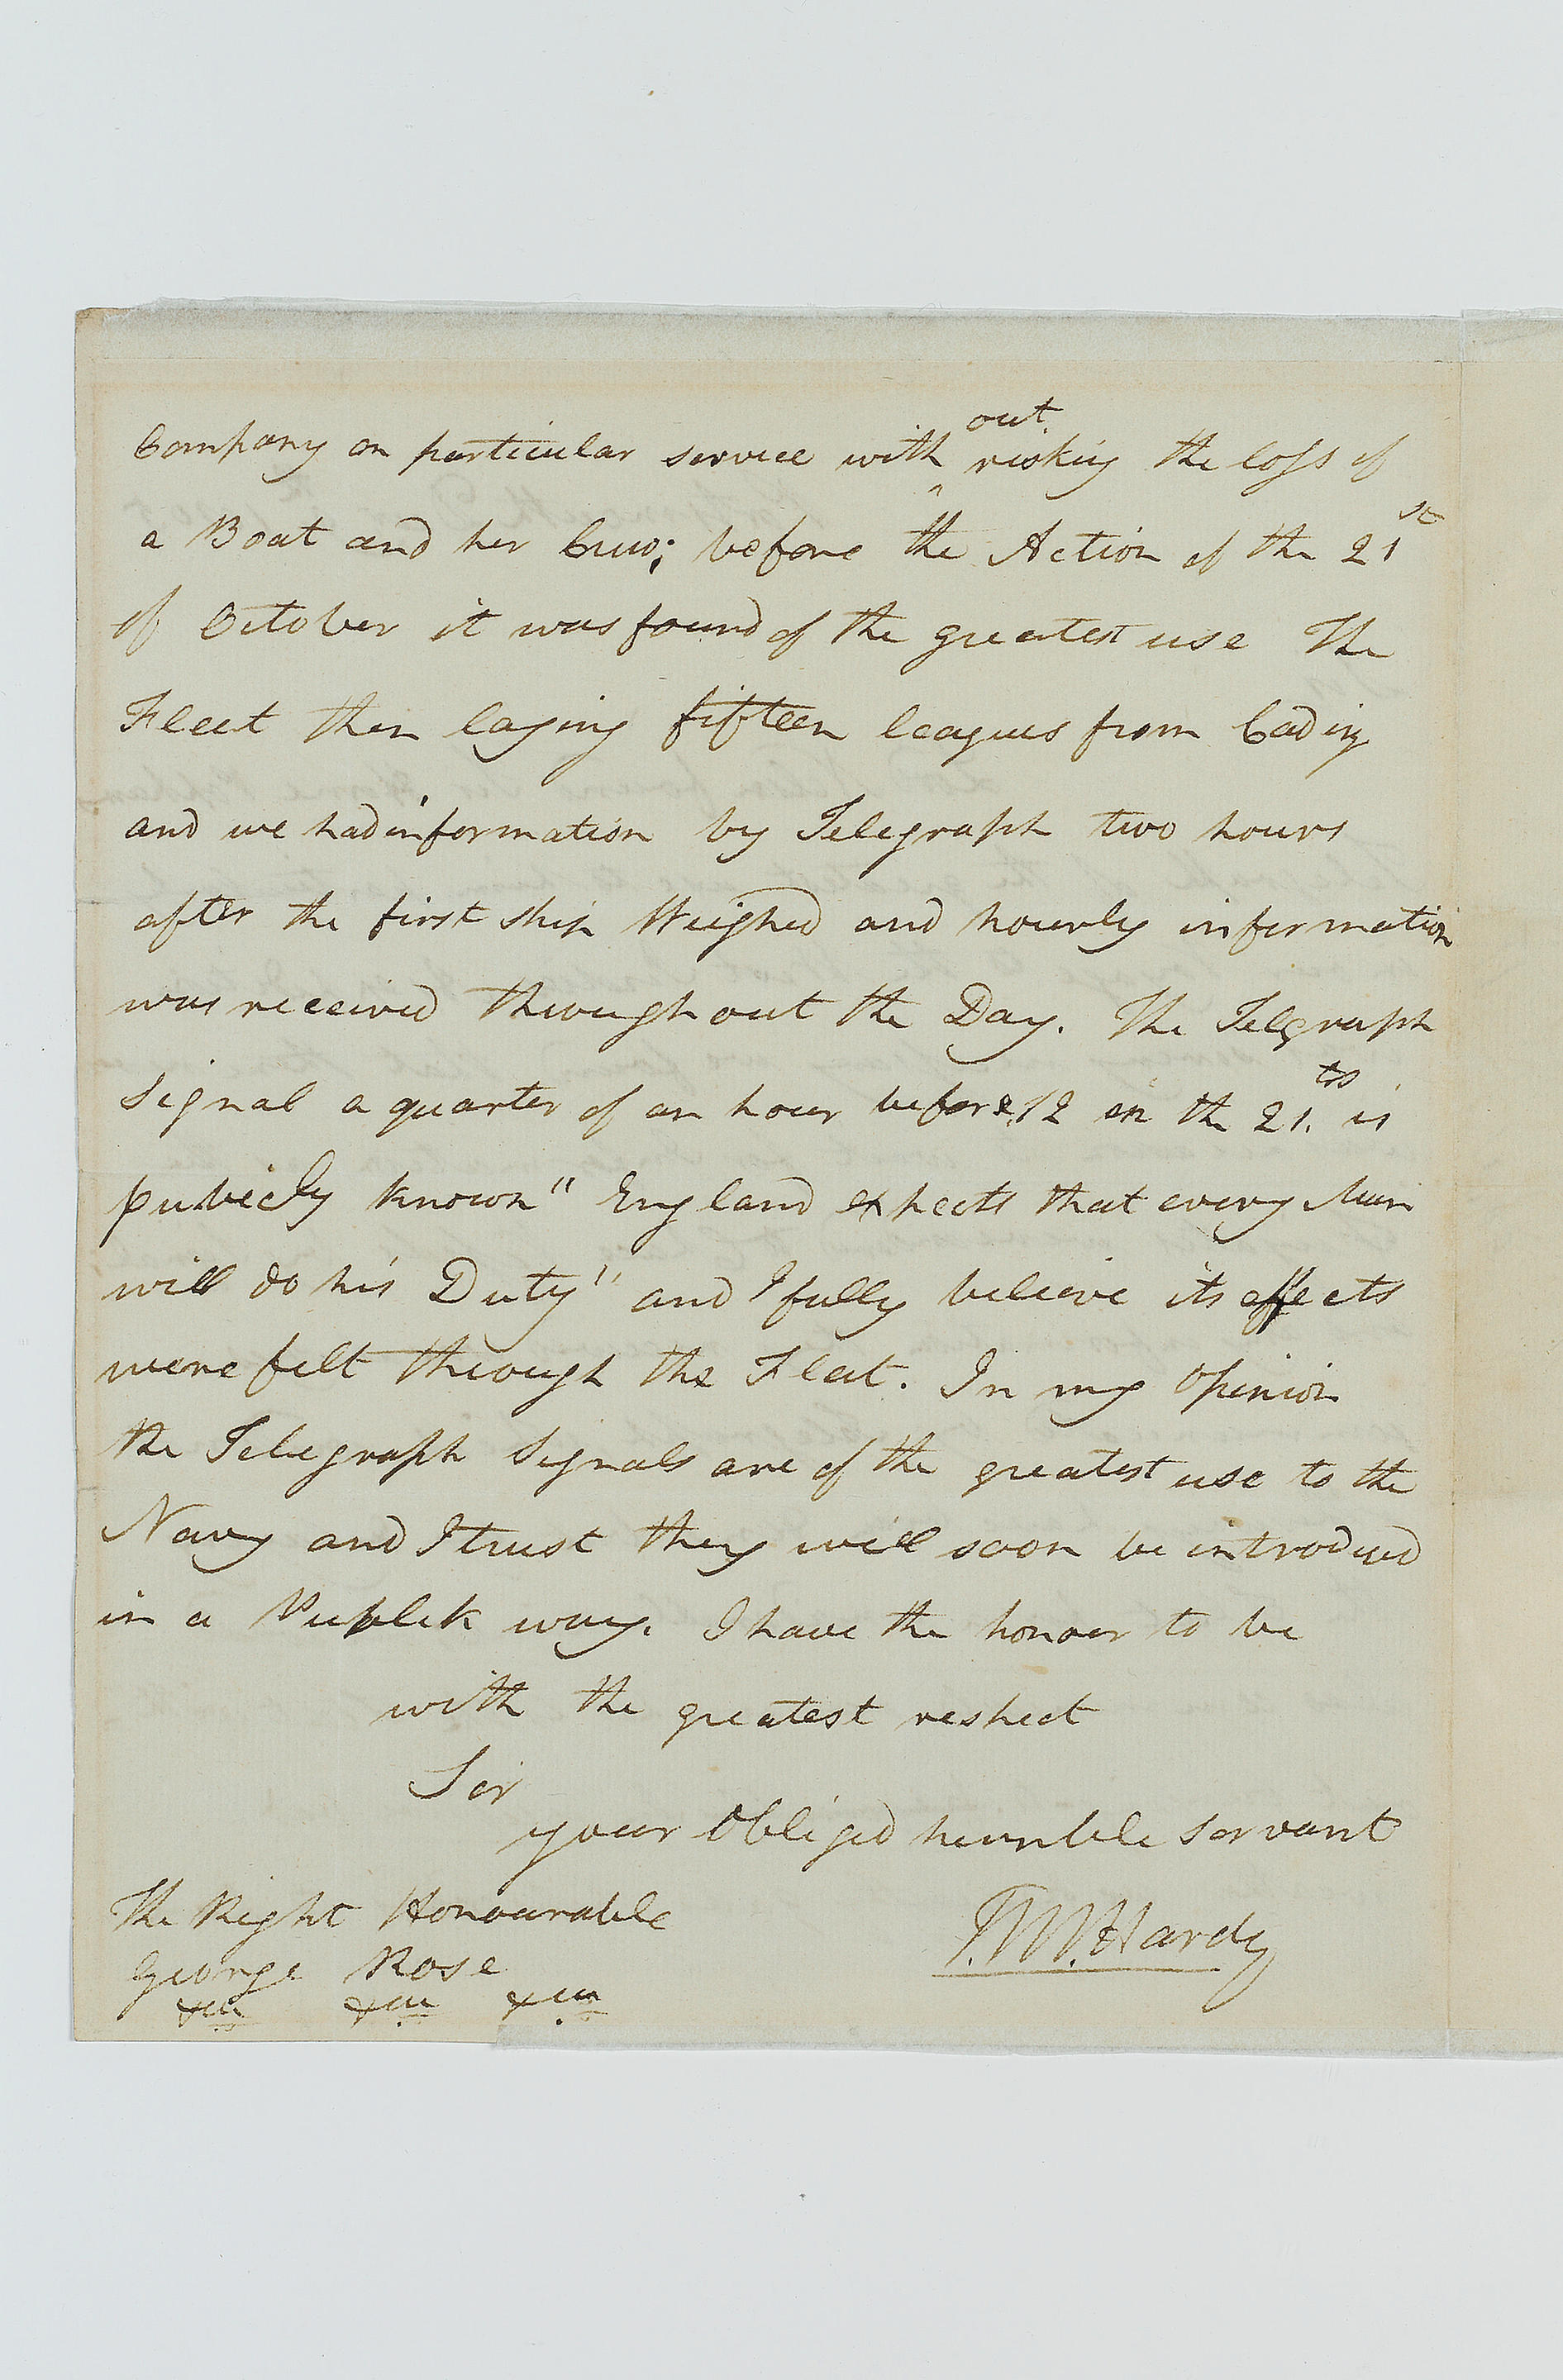 Company on particular service with^out risking the loss of
a Boat and her Crew; before the Action of the 21st
of October it was found of the greatest use The
Fleet then laying fifteen leagues from Cadiz
and we had information by Telegraph two hours
after the first ship Weighed and hourly information
was received throughout the Day. The Telgraph
Signal a quarter of an hour before 12 on the 21. is
publicly known " England expects that every Man
will do his Duty" and I fully believe its effects
were felt through the Fleet. In my opinion
the Telegraph Signals are of the greatest use to the
Navy and I trust they will soon be introduced
in a Publick way. I have the honour to be
with the greatest respect
Sir
your Obliged humble servant
The Right Honourable
T.M.Hardy
George Rose
&c &c &c